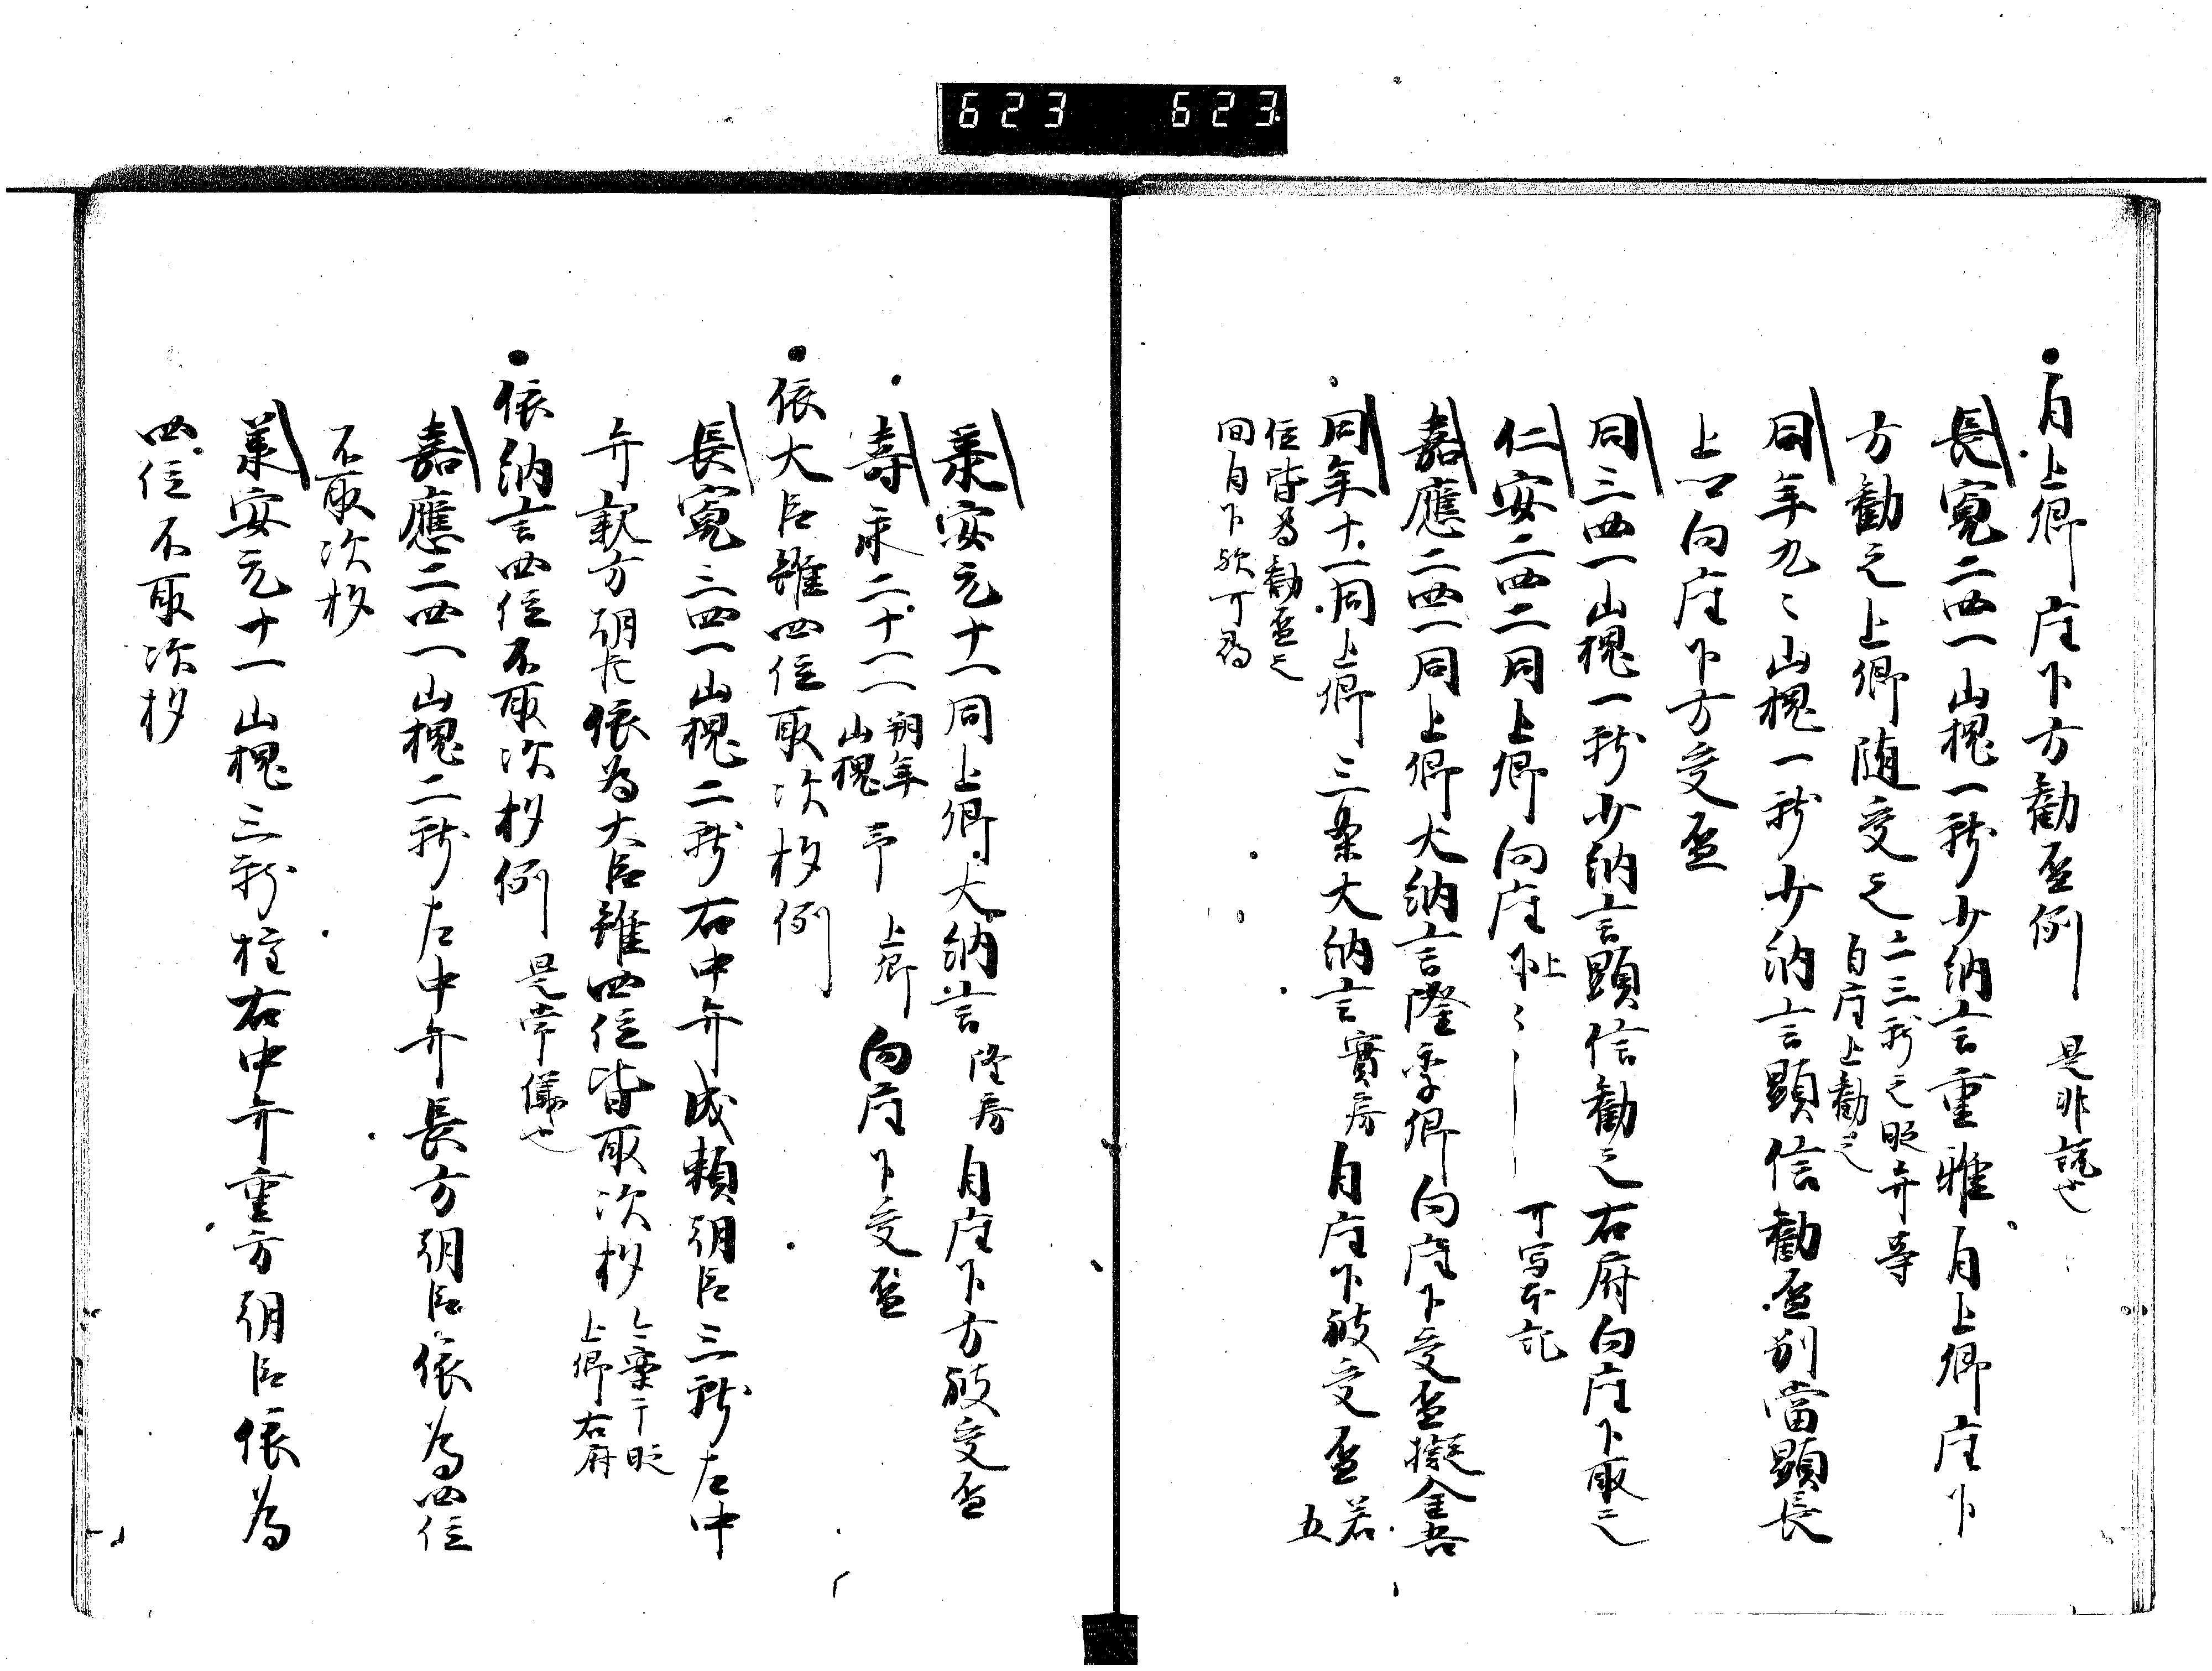 623 623
自上卿座下方勧盃例 是非説也
長寛二四一山槐一献少納言重雅自上卿座下
方勧之上卿随受之 二三献之時弁等
自座上勧之
同年九〻山槐一献少納言顕信勧盃別當顕長
上向座下方受盃
同三四一山槐一献少納言顕信勧之右府向座下取之
仁安二四二同上卿向座下上〻 可写本記
嘉應二四一同上卿大納言隆季卿向座下受盃擬金吾
同年十一同上卿三条大納言實房自座下被受盃 若
五
位皆為勧盃之
間自下欤可尋
承安元十一同上卿大納言隆房自座下方被受盃
壽永二十一一 朔年
山槐 上卿向座下受盃
依大臣雖四位取次杓例
長寛二四一山槐二献右中弁成頼朝臣三献左中
弁親方朝臣依為大臣雖四位皆取次杓
上卿右府
依納言四位不取次杓例 是常儀也
嘉應二四一山槐二献左中弁長方朝臣依為四位
不取次杓
承安元十一山槐三献権右中弁重方朝臣依為
四位不取次杓